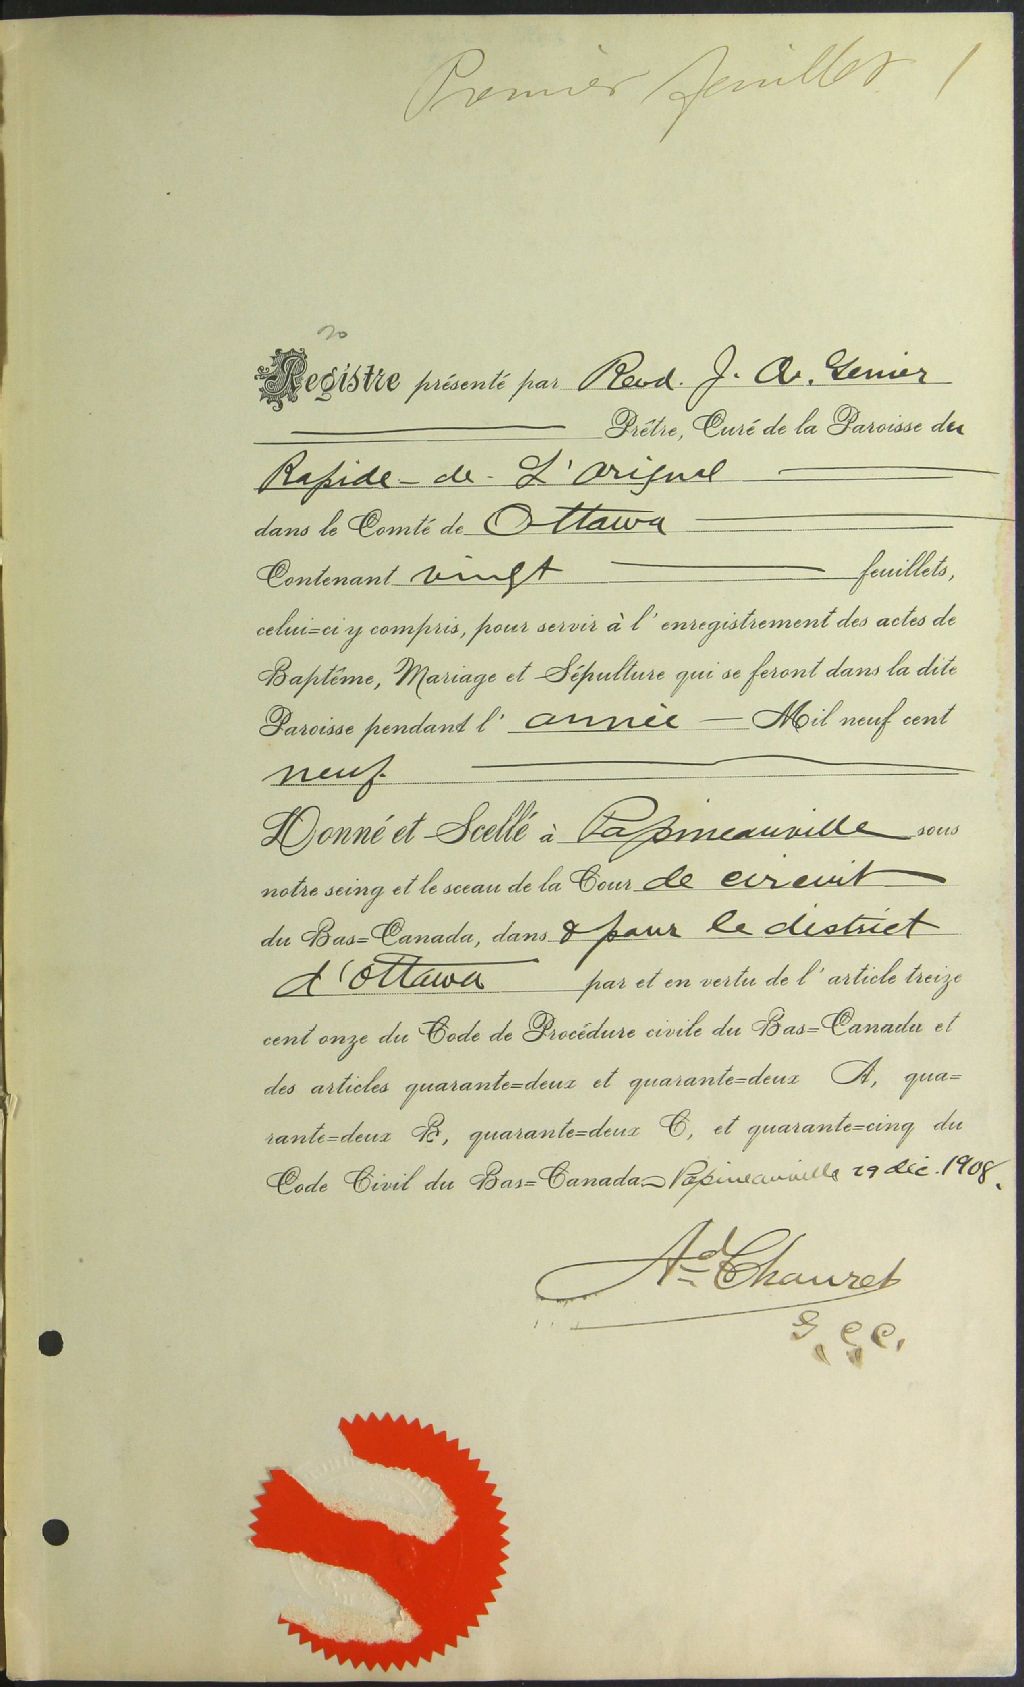 Premier feuillet 1
20
Registre présenté par Revd. J. A. Genier
Prêtre, Curé de la Paroisse du
Rapide - de - L'Orignal
dans le Comté de Ottawa
Contenant vingt feuillets,
celui=ci y compris, pour servir à l'enregistrement des actes de
Baptême, Mariage et Sépulture qui se feront dans la dite
Paroisse pendant l'année — Mil neuf cent
neuf.
Donné et Scellé à Papineauville sous
notre seing et le sceau de la Cour de circuit
du Bas=Canada, dans & pour le district
d'Ottawa par et en vertu de l'article treize
cent onze du Code de Procédure civile du Bas=Canada et
des articles quarante=deux et quarante=deux A, qua=
rante=deux B, quarante=deux C, et quarante=cinq du
Code Civil du Bas=Canada = Papineauville 29 déc. 1908.
Ad Chauret
G. C. C.